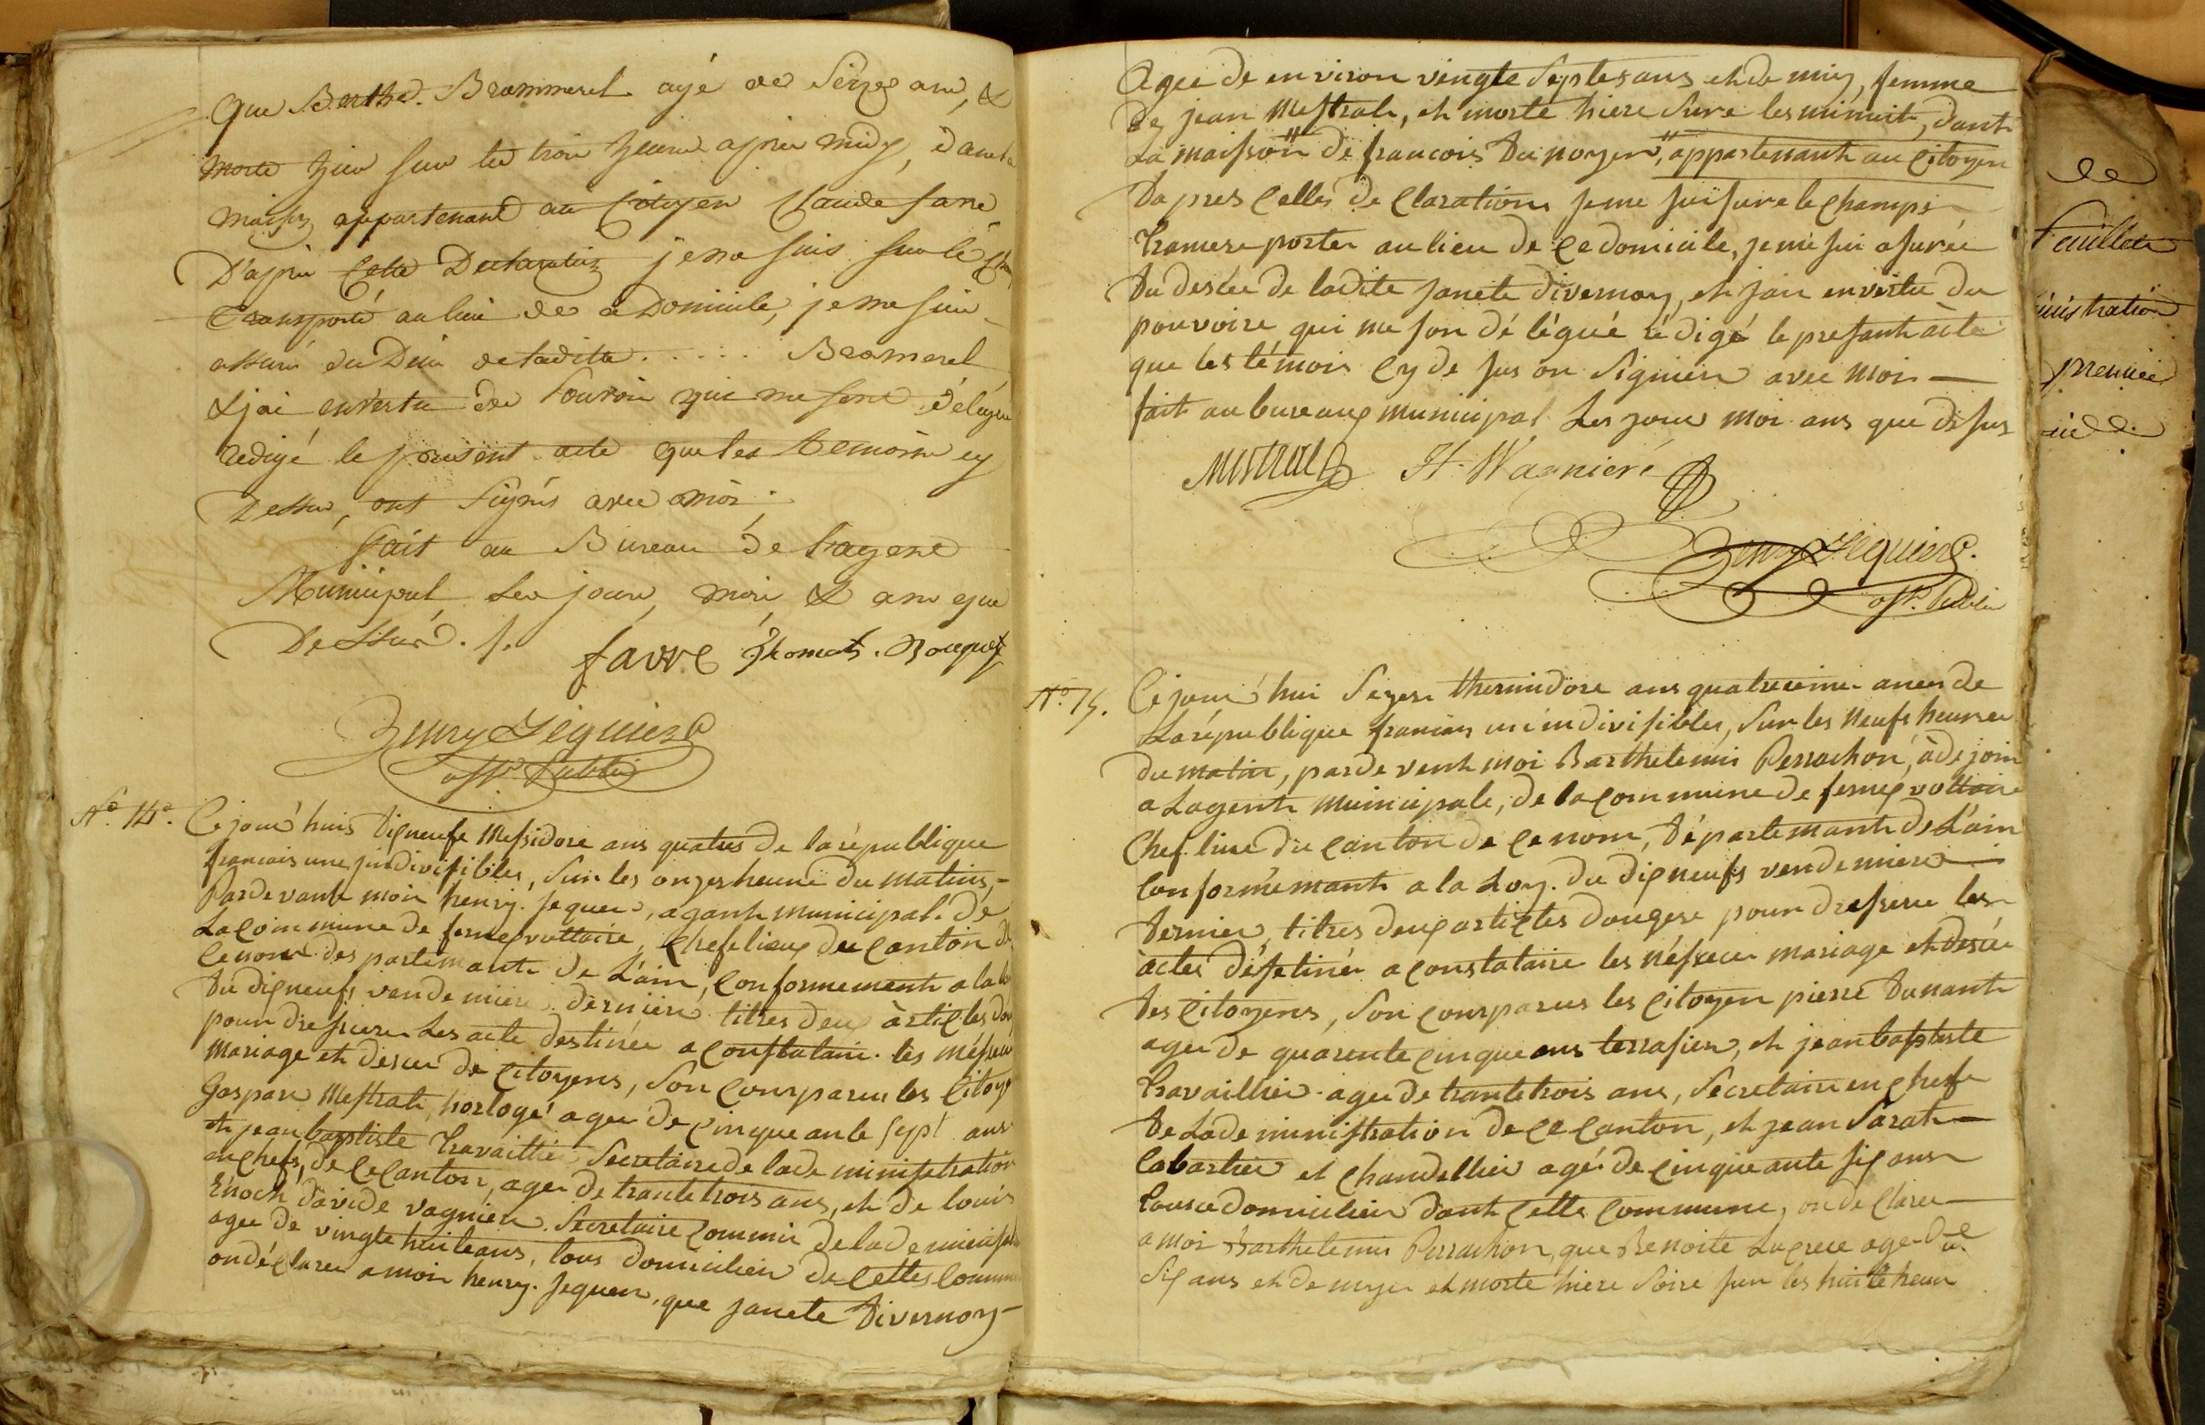 que Berthe. Brammerel agé de Seize ans, &
morte hier sur les trois heure apres midy, dans la
maison appartenant au Citoyen Claude fane
D'apres Cette Declaration je me suis sur le
transporté au lieu de ce Domicile, je me suis
assuré du Deces de ladite ..... Bramerel
& j'ai en vertu des Pouvoir qui me sont délégué
redigé le present acte que les temoins cy
Dessus, ont Signés avec moi.
fait au Bureau de l'agent
Municipal les jour, mois & an que
Dessus ./.
favre Thomas. Bouquet
Henry Jequier
off. Public
No. 14. Ce jour'huis digneufe Messidore ans quatres de la république
francais une indivisibles, Sur les onzes heure du matins,
Pardevant moin henry. Jequer, agant municipal. de
La Commune de fernex voltaire, Chefelieux du Canton de
ce nom des partemante de L'ain, Conformement a la loy
Du digneufs vendemiere derniere titres deux articles
pour dressere Les acte destinée a Constataire. les
mariage et deseé de Citoyens, Son Compareu les Citoy
Gaspare Mestrale, horloge' agee de Cinqueante Sept ans
et jean baptiste Travaillie Secretaire de lade ministration
en chefs, de ce Canton, agee de trante trois ans, et de louis
Enoch davide vagniere. Secretaire Commis de lade minist
agee de vingte huite ans, tous domicilien de Cettes Commun
on déclaree a moin henry. Jequer, que janete Divernoy
Agee de environ vingte Septes ans et de miy, femme
de jean Mestrale, et morte hiere Sure les minuit, dant
La maisson de francois Dunoyer, appartenant au Citoyen
Dapres Celles de Claration je me sui sure le Champs
transe porter au lieu de ce domicile, je me sui asurée
Du deseé de ladite janete divernoy, et jai en vertu du
pouvoire qui me son délégué rédigé le present acte
que les témois Cy de sus on Signier avec moi
fait au bureaux municipal Les jour moi ans que de sus
Mestral H. Wagniere
Henry Jequier
off. Public
No. 15. Ce jour'hui Sezes thermidore ans quatreieme anee de
La république francais une indivisibles, Sur les Neufs heures
du matin, pardevent moi Barthelemi Perrachon, adejoin
a Lagente municipale, de la Commune de fernex voltaire
Chef lieu du Canton de ce nom, Département de L'ain
Conformémante a la Loy. du digneufs vendemiere
Dernier, titres deux articles dougese pour dressere les
actes déstinée a Constataire les mariage et deseé
Des Citoyens, Son Comparus les Citoyen pierre Dunant
agee de quarente Cinque ans terrasier, et jean baptiste
Travaillier agee de trante trois ans, Secretaire en chefe
De Lade ministration de ce Canton, et jean Sarat
Cabartier et Chandellier agé de Cinqueante six ans
tous domicilien dant Cette Commune, on de claree
a moi Barthelemi Perrachon, que Benoite Lacreee age de
Six ans et demi et morte hiere Soire sur les huite heure
feuillet
ministration
premier